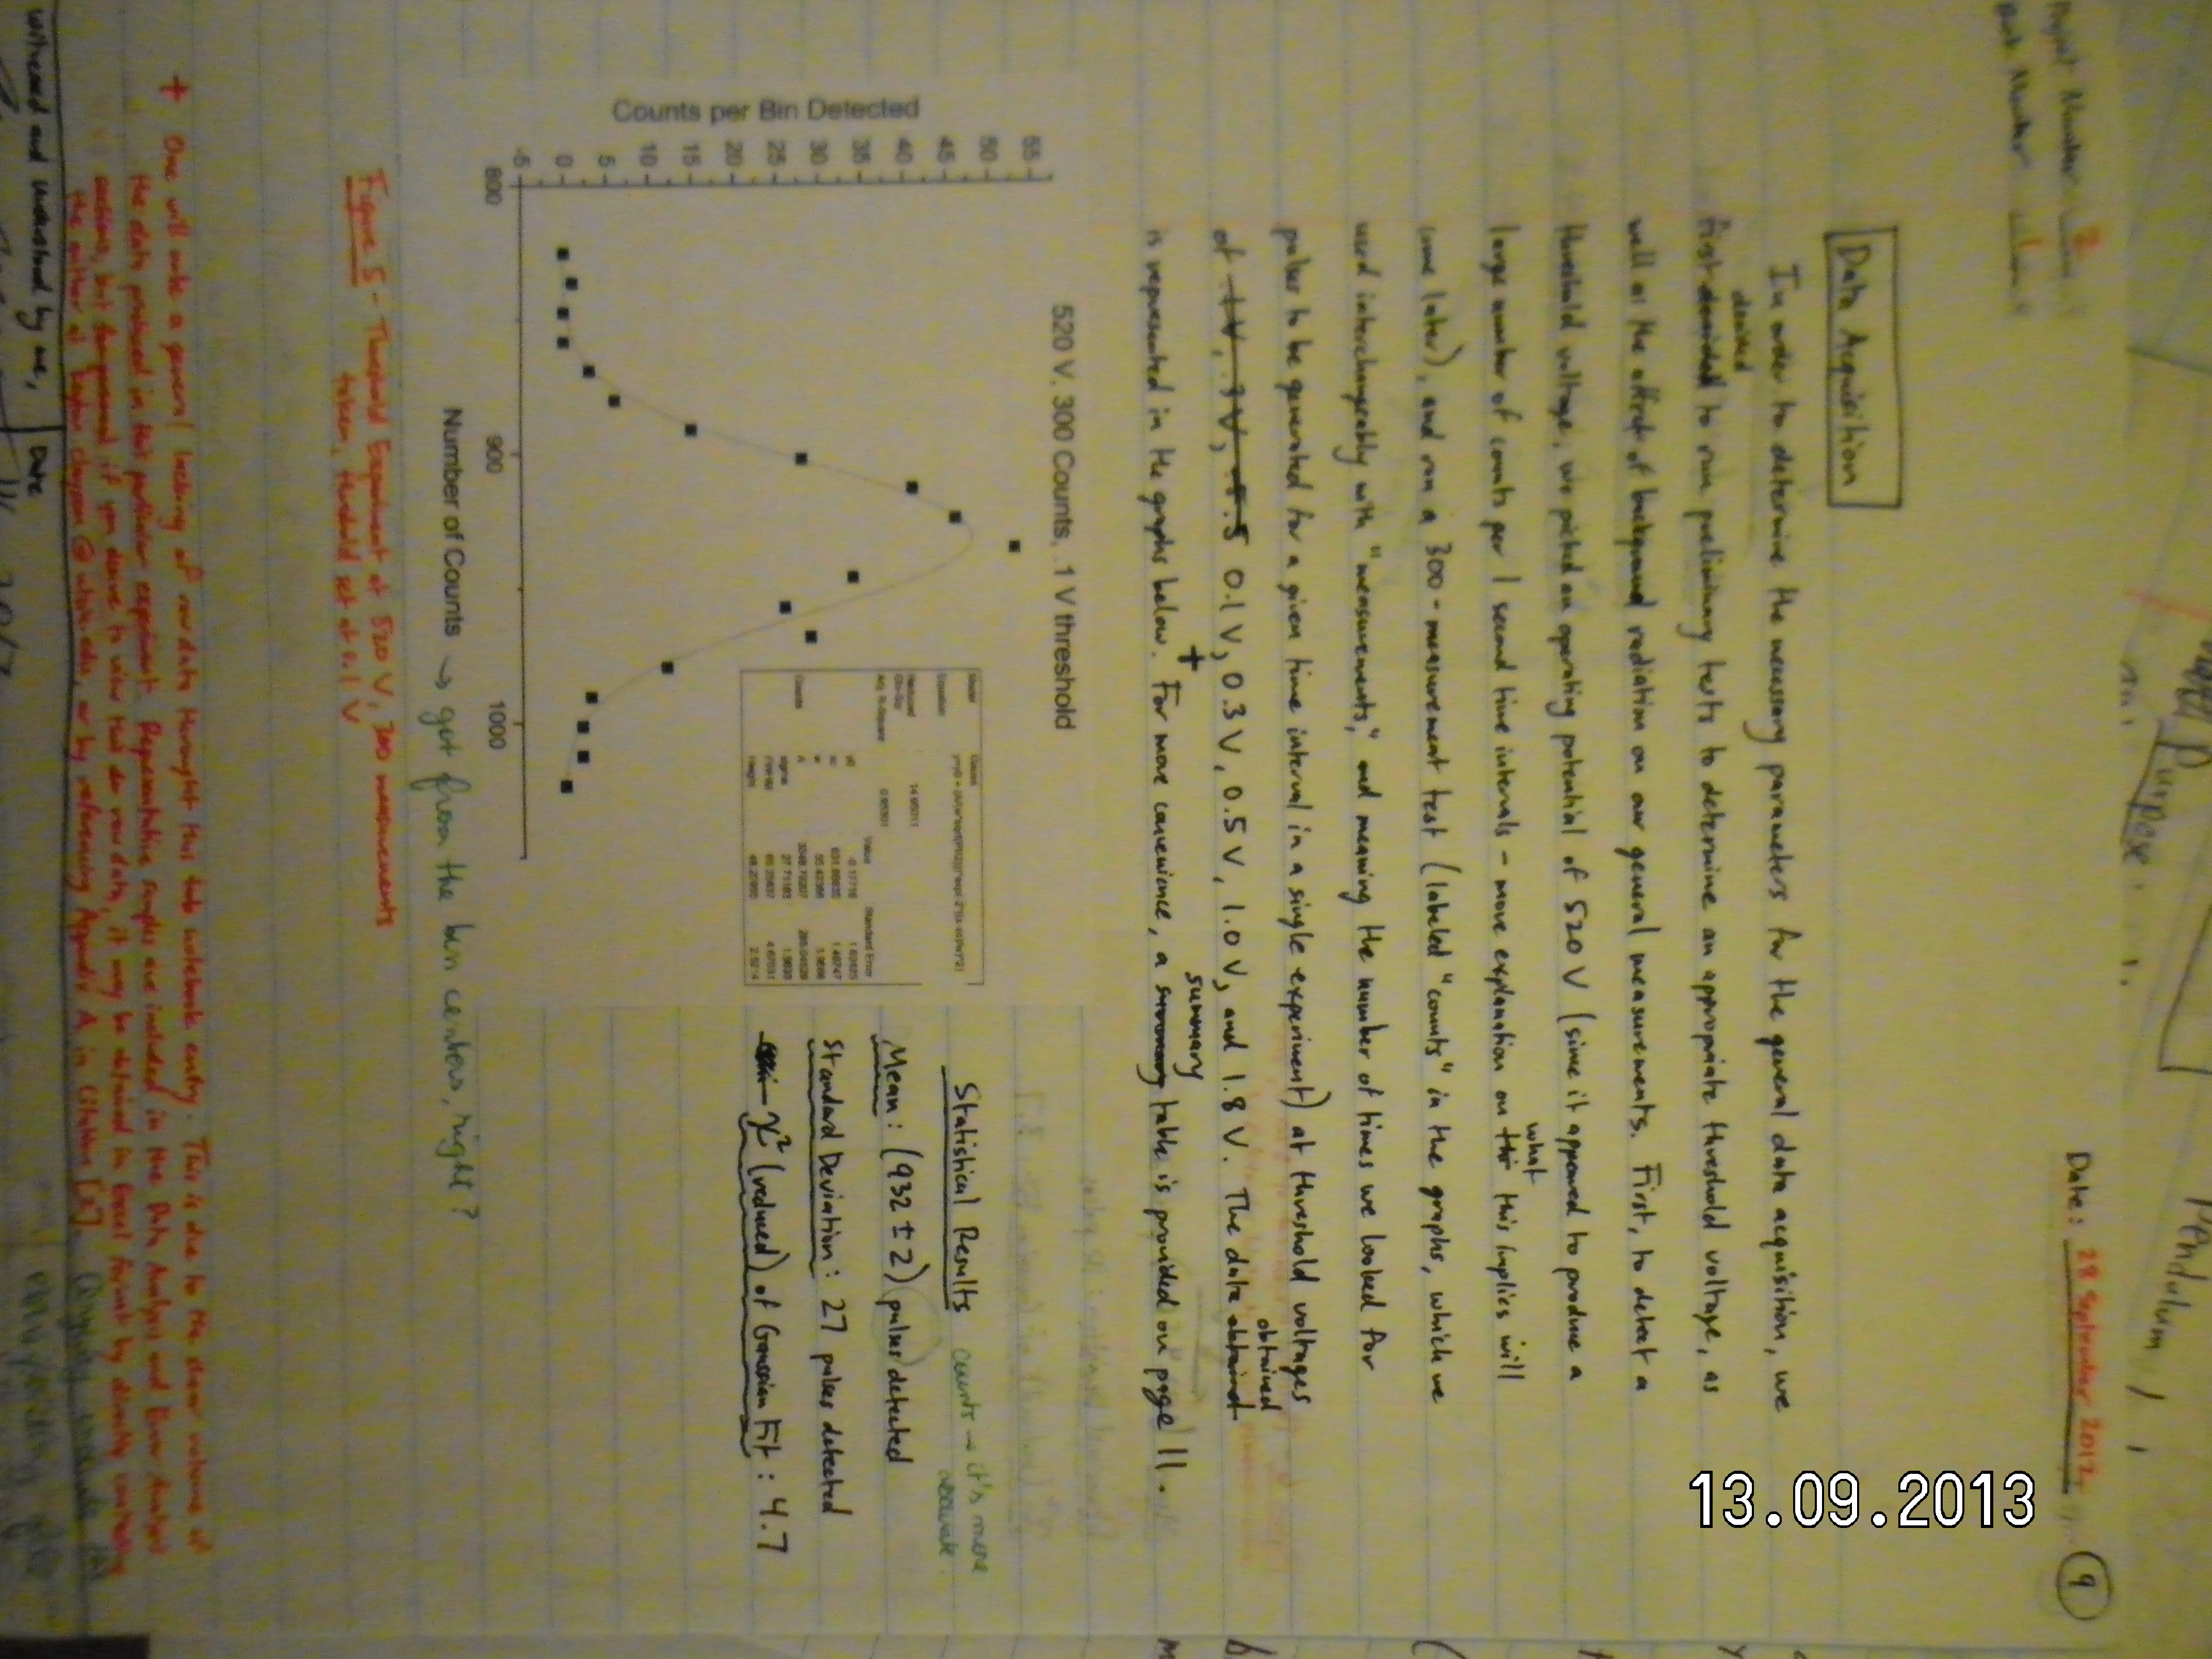 Date: 28 September 2012
9
Project Number 2
Book Number
Data Acquisition
In order to determine the necessary parameters for the general data acquisition, we
decided
first decided to run preliminary tests to determine an appropriate threshold voltage, as
well as the effect of background radiation on our general measurements. First, to detect a
threshold voltage, we picked an operating potential of 520 V (since it appeared to produce a
large number of counts per 1 second time intervals - more explanation on what this implies will
come later), and ran a 300-measurement test (labeled "counts" in the graphs, which we
used interchangeably with "measurements," and meaning the number of times we looked for
pulses to be generated for a given time interval in a single experiment) at threshold voltages
of .1V, .3V, 0.1 V, 0.3 V, 0.5 V, 1.0 V, and 1.8 V. The data obtained
is represented in the graphs below. + For more convenience, a summary table is provided on page 11.
520 V, 300 Counts, .1 V threshold
Counts per Bin Detected
55
50
45
40
35
30
25
20
15
10
5
0
-5
800
900
1000
Number of Counts → get from the bin centers, right?
Model Gauss
Equation
Reduced Chi-Sqr
Adj. R-Square
Value Standard Error
Counts
y0
xc
w
A
sigma
FWHM
Height
Statistical Results
counts → it's more accurate.
Mean: (932 ± 2) pulses detected
Standard Deviation: 27 pulses detected
χ² (reduced) of Gaussian Fit: 4.7
Figure 5 - Threshold Experiment at 520 V, 300 measurements
taken, threshold set at 0.1 V
+ One will note a general lacking of raw data throughout this lab notebook entry. This is due to the sheer volume of
the data produced in this particular experiment. Representative samples are included in the Data Analysis and Error Analysis
sections, but if you desire to view the raw data, it may be obtained in Excel format by directly contacting
the author at or by referencing Appendix A in Citation [2].
Witnessed and understood by me,
Date
Purpose
13.09.2013